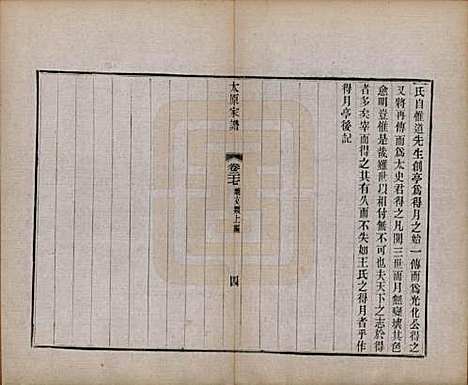 氏自惟道先生創亭爲得月之始一傳而爲光化公得之
又將再傳而爲太史君得之凡閱三世而月無變壞其色
愈明豈惟是哉雖世以相付無不可也夫天下之志於得
者多矣幸而得之其有久而不失如王氏之得月者乎作
得月亭後記
太原家譜
卷二十七 雜文類上編
四